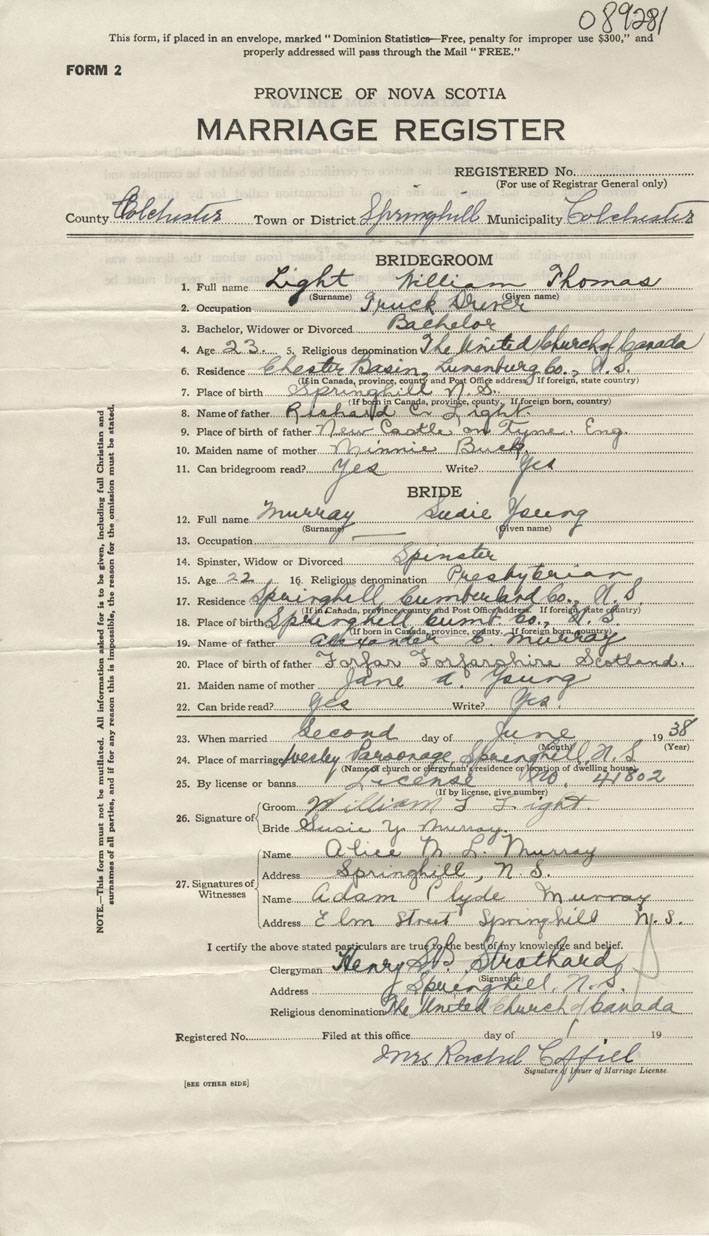 089281
This form, if placed in an envelope, marked "Dominion Statistics—Free, penalty for improper use $300," and
properly addressed will pass through the Mail "FREE."
FORM 2
PROVINCE OF NOVA SCOTIA
MARRIAGE REGISTER
REGISTERED No.
(For use of Registrar General only)
County Colchester Town or District Springhill Municipality Colchester
BRIDEGROOM
1. Full name Light William Thomas
(Surname) (Given name)
2. Occupation Truck Driver
3. Bachelor, Widower or Divorced Bachelor
4. Age 23. 5. Religious denomination The United Church of Canada
6. Residence Chester Basin, Lunenburg Co., N.S.
(If in Canada, province, county and Post Office address. If foreign, state country)
7. Place of birth Springhill N.S.
(If born in Canada, province, county. If foreign born, country)
8. Name of father Richard C. Light
9. Place of birth of father New Castle on Tyne. Eng.
10. Maiden name of mother Minnie Buck
11. Can bridegroom read? Yes Write? Yes
BRIDE
12. Full name Murray Susie Young
(Surname) (Given name)
13. Occupation —
14. Spinster, Widow or Divorced Spinster
15. Age 22 16. Religious denomination Presbyterian
17. Residence Springhill Cumberland Co., N.S.
(If in Canada, province, county and Post Office address. If foreign, state country)
18. Place of birth Springhill Cumb. Co., N.S.
(If born in Canada, province, county. If foreign born, country)
19. Name of father Alexander C. Murray
20. Place of birth of father Forfar Forfarshire Scotland.
21. Maiden name of mother Jane A. Young
22. Can bride read? Yes Write? Yes.
23. When married Second day of June 1938
(Month) (Year)
24. Place of marriage Wesley Parsonage, Springhill, N.S
(Name of church or clergyman's residence or location of dwelling house)
25. By license or banns License No. 41802
(If by license, give number)
26. Signature of
Groom William T Light.
Bride Susie Y Murray.
27. Signatures of Witnesses
Name Alice M. L. Murray
Address Springhill, N.S.
Name Adam Clyde Murray
Address Elm Street Springhill N.S.
I certify the above stated particulars are true to the best of my knowledge and belief.
Clergyman Henry S.B. Strothard
(Signature)
Address Springhill, N.S.
Religious denomination The United Church of Canada
Registered No. Filed at this office day of 19
Mrs Rachel Coffill
Signature of Issuer of Marriage License.
[SEE OTHER SIDE]
NOTE.—This form must not be mutilated. All information asked for is to be given, including full Christian and
surnames of all parties, and if for any reason this is impossible, the reason for the omission must be stated.